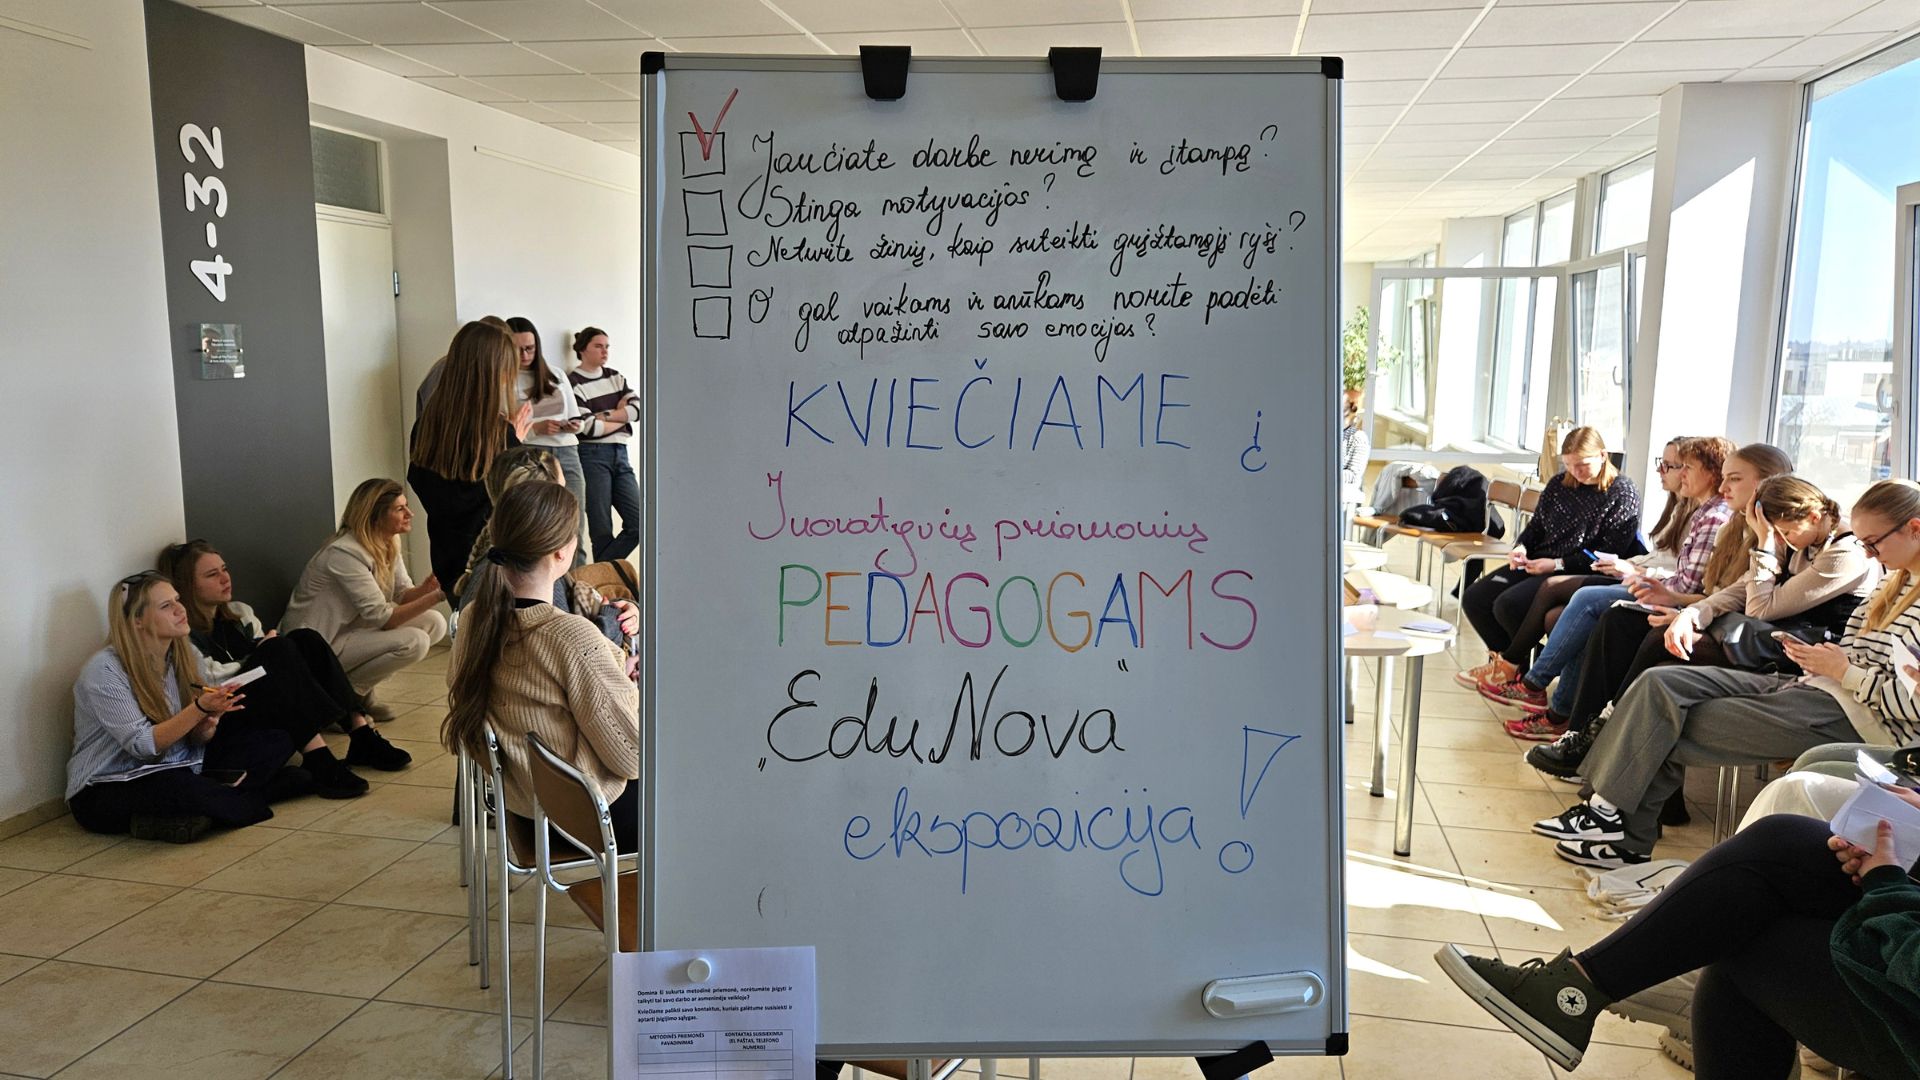 4-32
Jaučiate darbe nerimą ir įtampą?
Stinga motyvacijos?
Neturite žinių, kaip suteikti grįžtamąjį ryšį?
O gal vaikams ir anūkams norite padėti
atpažinti savo emocijas?
KVIEČIAME į
Inovatyvių priemonių
PEDAGOGAMS
„EduNova“
ekspozicija!
Domina ši sukurta metodinė priemonė, norėtumėte įsigyti ir
taikyti tai savo darbo ar asmeninėje veikloje?
Kviečiame palikti savo kontaktus, kuriais galėtume susisiekti ir
aptarti įsigijimo sąlygas.
METODINĖS PRIEMONĖS PAVADINIMAS
KONTAKTAS SUSISIEKIMUI
(EL PAŠTAS, TELEFONO
NUMERIS)